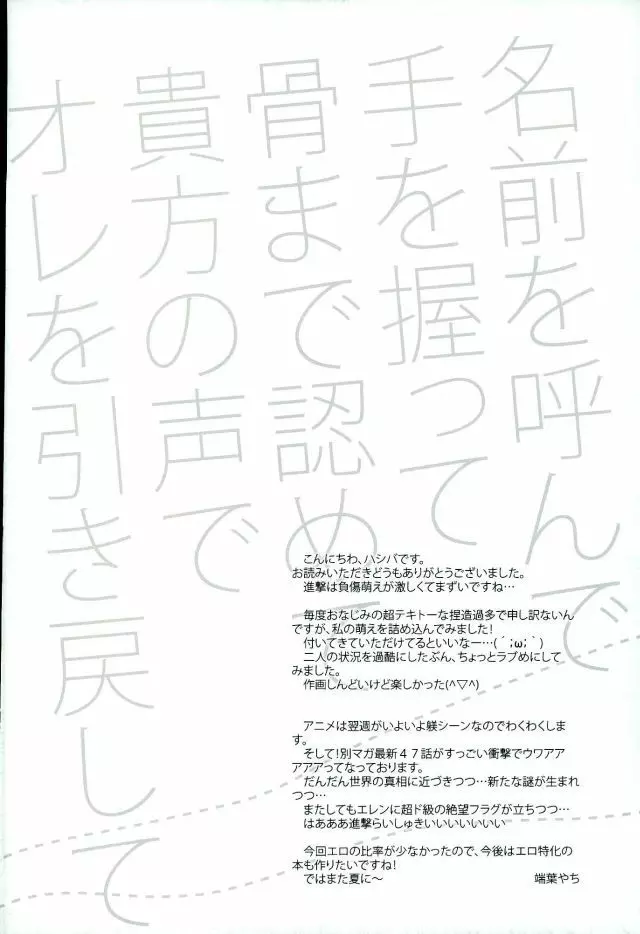 名前を呼んで
手を握って
骨まで認めて
貴方の声で
オレを引き戻して
こんにちわ、ハシバです。
お読みいただきどうもありがとうございました。
進撃は負傷萌えが激しくてまずいですね…
毎度おなじみの超テキトーな捏造過多で申し訳ないん
ですが、私の萌えを詰め込んでみました!
付いてきていただけてるといいなー…(´;ω;｀)
二人の状況を過酷にしたぶん、ちょっとラブめにして
みました。
作画しんどいけど楽しかった(^▽^)
アニメは翌週がいよいよ躾シーンなのでわくわくしま
す。
そして!別マガ最新４７話がすっごい衝撃でウワアア
アアアってなっております。
だんだん世界の真相に近づきつつ…新たな謎が生まれ
つつ…
またしてもエレンに超ド級の絶望フラグが立ちつつ…
はあああ進撃らいしゅきいいいいいいい
今回エロの比率が少なかったので、今後はエロ特化の
本も作りたいですね!
ではまた夏に～
端葉やち